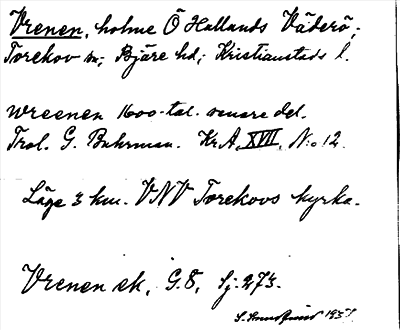 Vrenen, holme Ö Hallands Väderö,
Torekov sn, Bjäre hd, Kristianstads l.
Wreenen 1600-tal. senare del.
Trol. G. Buhrman. Kr.A. XVII, N:o 12.
Läge 3 km. VNV Torekovs kyrka.
Vrenen ek, G.8, Sj. 273.
1937